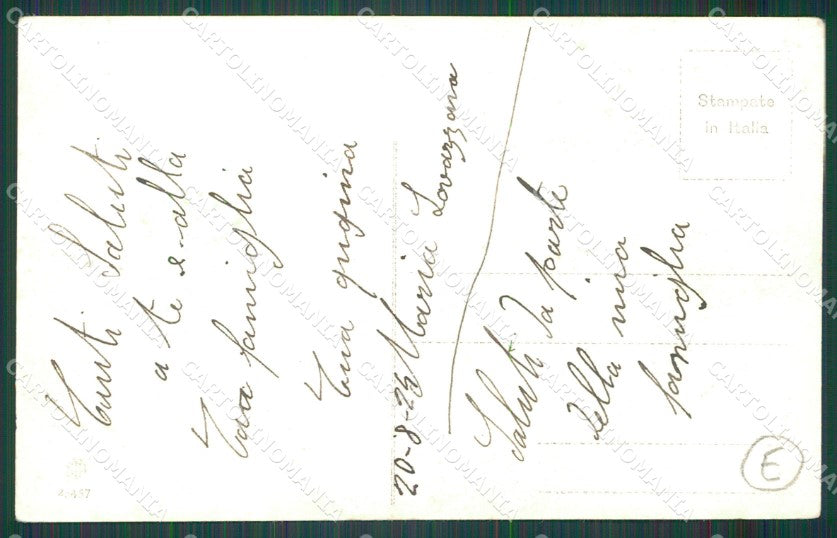 Tanti Saluti
a te e alla
Tua famiglia
Tua qugina
Maria Lovazzana
20-8-25
Saluti da parte
della mia
famiglia
Stampate
in Italia
E
CARTOLINOMANIA